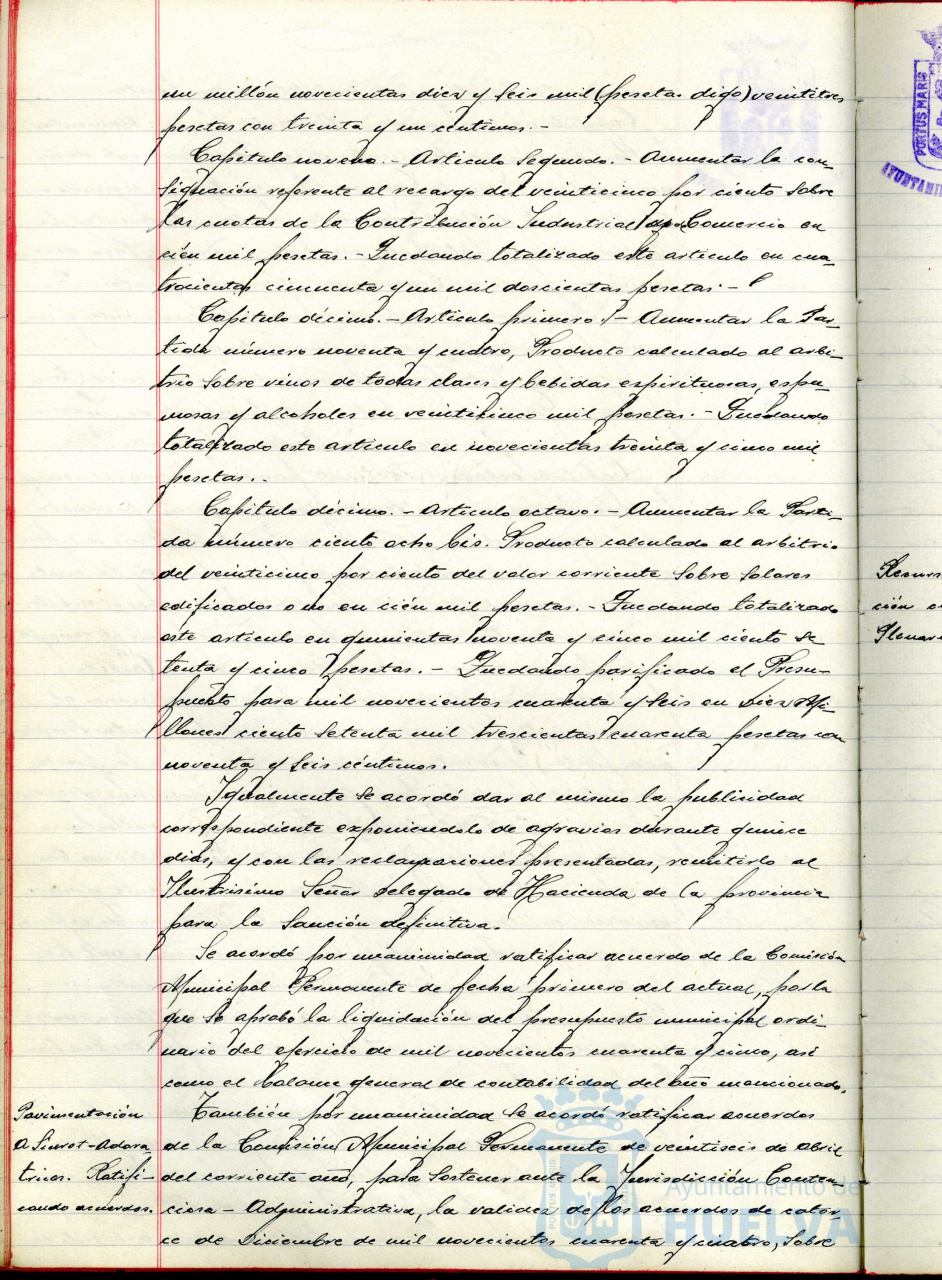 un millón novecientas diez y seis mil (pesetas digo) veintitres
pesetas con treinta y un centimos.-
Capitulo noveno.- Articulo Segundo.- Aumentar la con-
signación referente al recargo del veinticinco por ciento sobre
las cuotas de la Contribución Industrial de Comercio en
cién mil pesetas.- Quedando totalizado este articulo en cua-
trocientas cincuenta y un mil doscientas pesetas.-
Capitulo décimo.- Articulo primero.- Aumentar la Par-
tida número noventa y cuatro, Producto calculado al arbi-
trio sobre vinos de todas clases y bebidas espirituosas, espu-
mosas y alcoholes en veinticinco mil pesetas.- Quedando
totalizado este articulo en novecientas treinta y cinco mil
pesetas..
Capitulo décimo.- Articulo octavo.- Aumentar la Parti-
da número ciento ocho bis. Producto calculado al arbitrio
del veinticinco por ciento del valor corriente sobre solares
edificados o no en cién mil pesetas.- Quedando totalizado
este articulo en quinientas noventa y cinco mil ciento se
tenta y cinco pesetas.- Quedando parificado el Presu-
puesto para mil novecientos cuarenta y seis en Diez Mi-
llones ciento setenta mil trescientas cuarenta pesetas con
noventa y seis céntimos.
Igualmente se acordó dar al mismo la publicidad
correspondiente exponiendolo de agravios durante quince
dias, y con las reclamaciones presentadas, remitirlo al
Ilustrisimo Señor Delegado de Hacienda de la provincia
para la sanción definitiva.
Se acordó por unanimidad ratificar acuerdo de la Comisión
Municipal Permanente de fecha primero del actual, por la
que se aprobó la liquidación del presupuesto municipal ordi-
nario del ejercicio de mil novecientos cuarenta y cinco, asi
como el balance general de contabilidad del año mencionado.
Pavimentación
a Siurot-Adora-
trices. Ratifi-
cando acuerdos.
También por unanimidad se acordó ratificar acuerdos
de la Comisión Municipal Permanente de veintiseis de abril
del corriente año, para sostener ante la Jurisdicción Conten-
ciosa-Administrativa, la validez de los acuerdos de cator-
ce de Diciembre de mil novecientos cuarenta y cuatro, sobre
PORTUS MARIS
Ayuntamiento de
HUELVA
PORTUS MARIS
AYUNTAMI
ción